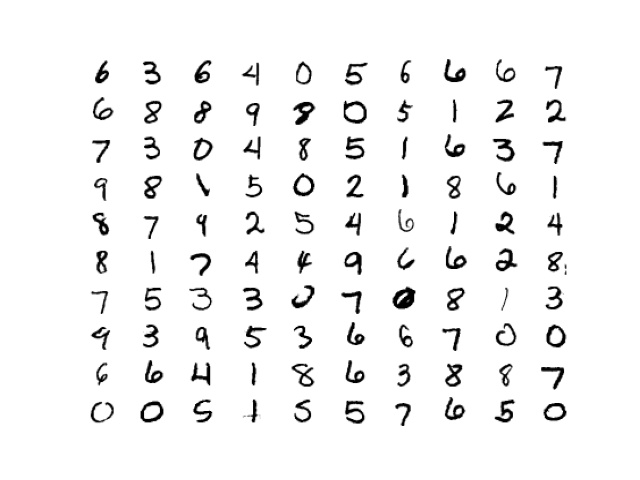 6 3 6 4 0 5 6 6 6 7
6 8 8 9 8 0 5 1 2 2
7 3 0 4 8 5 1 6 3 7
9 8 1 5 0 2 1 8 6 1
8 7 9 2 5 4 6 1 2 4
8 1 7 4 4 9 6 6 2 8
7 5 3 3 0 7 0 8 1 3
9 3 9 5 3 6 6 7 0 0
6 6 4 1 8 6 3 8 8 7
0 0 5 1 5 5 7 6 5 0